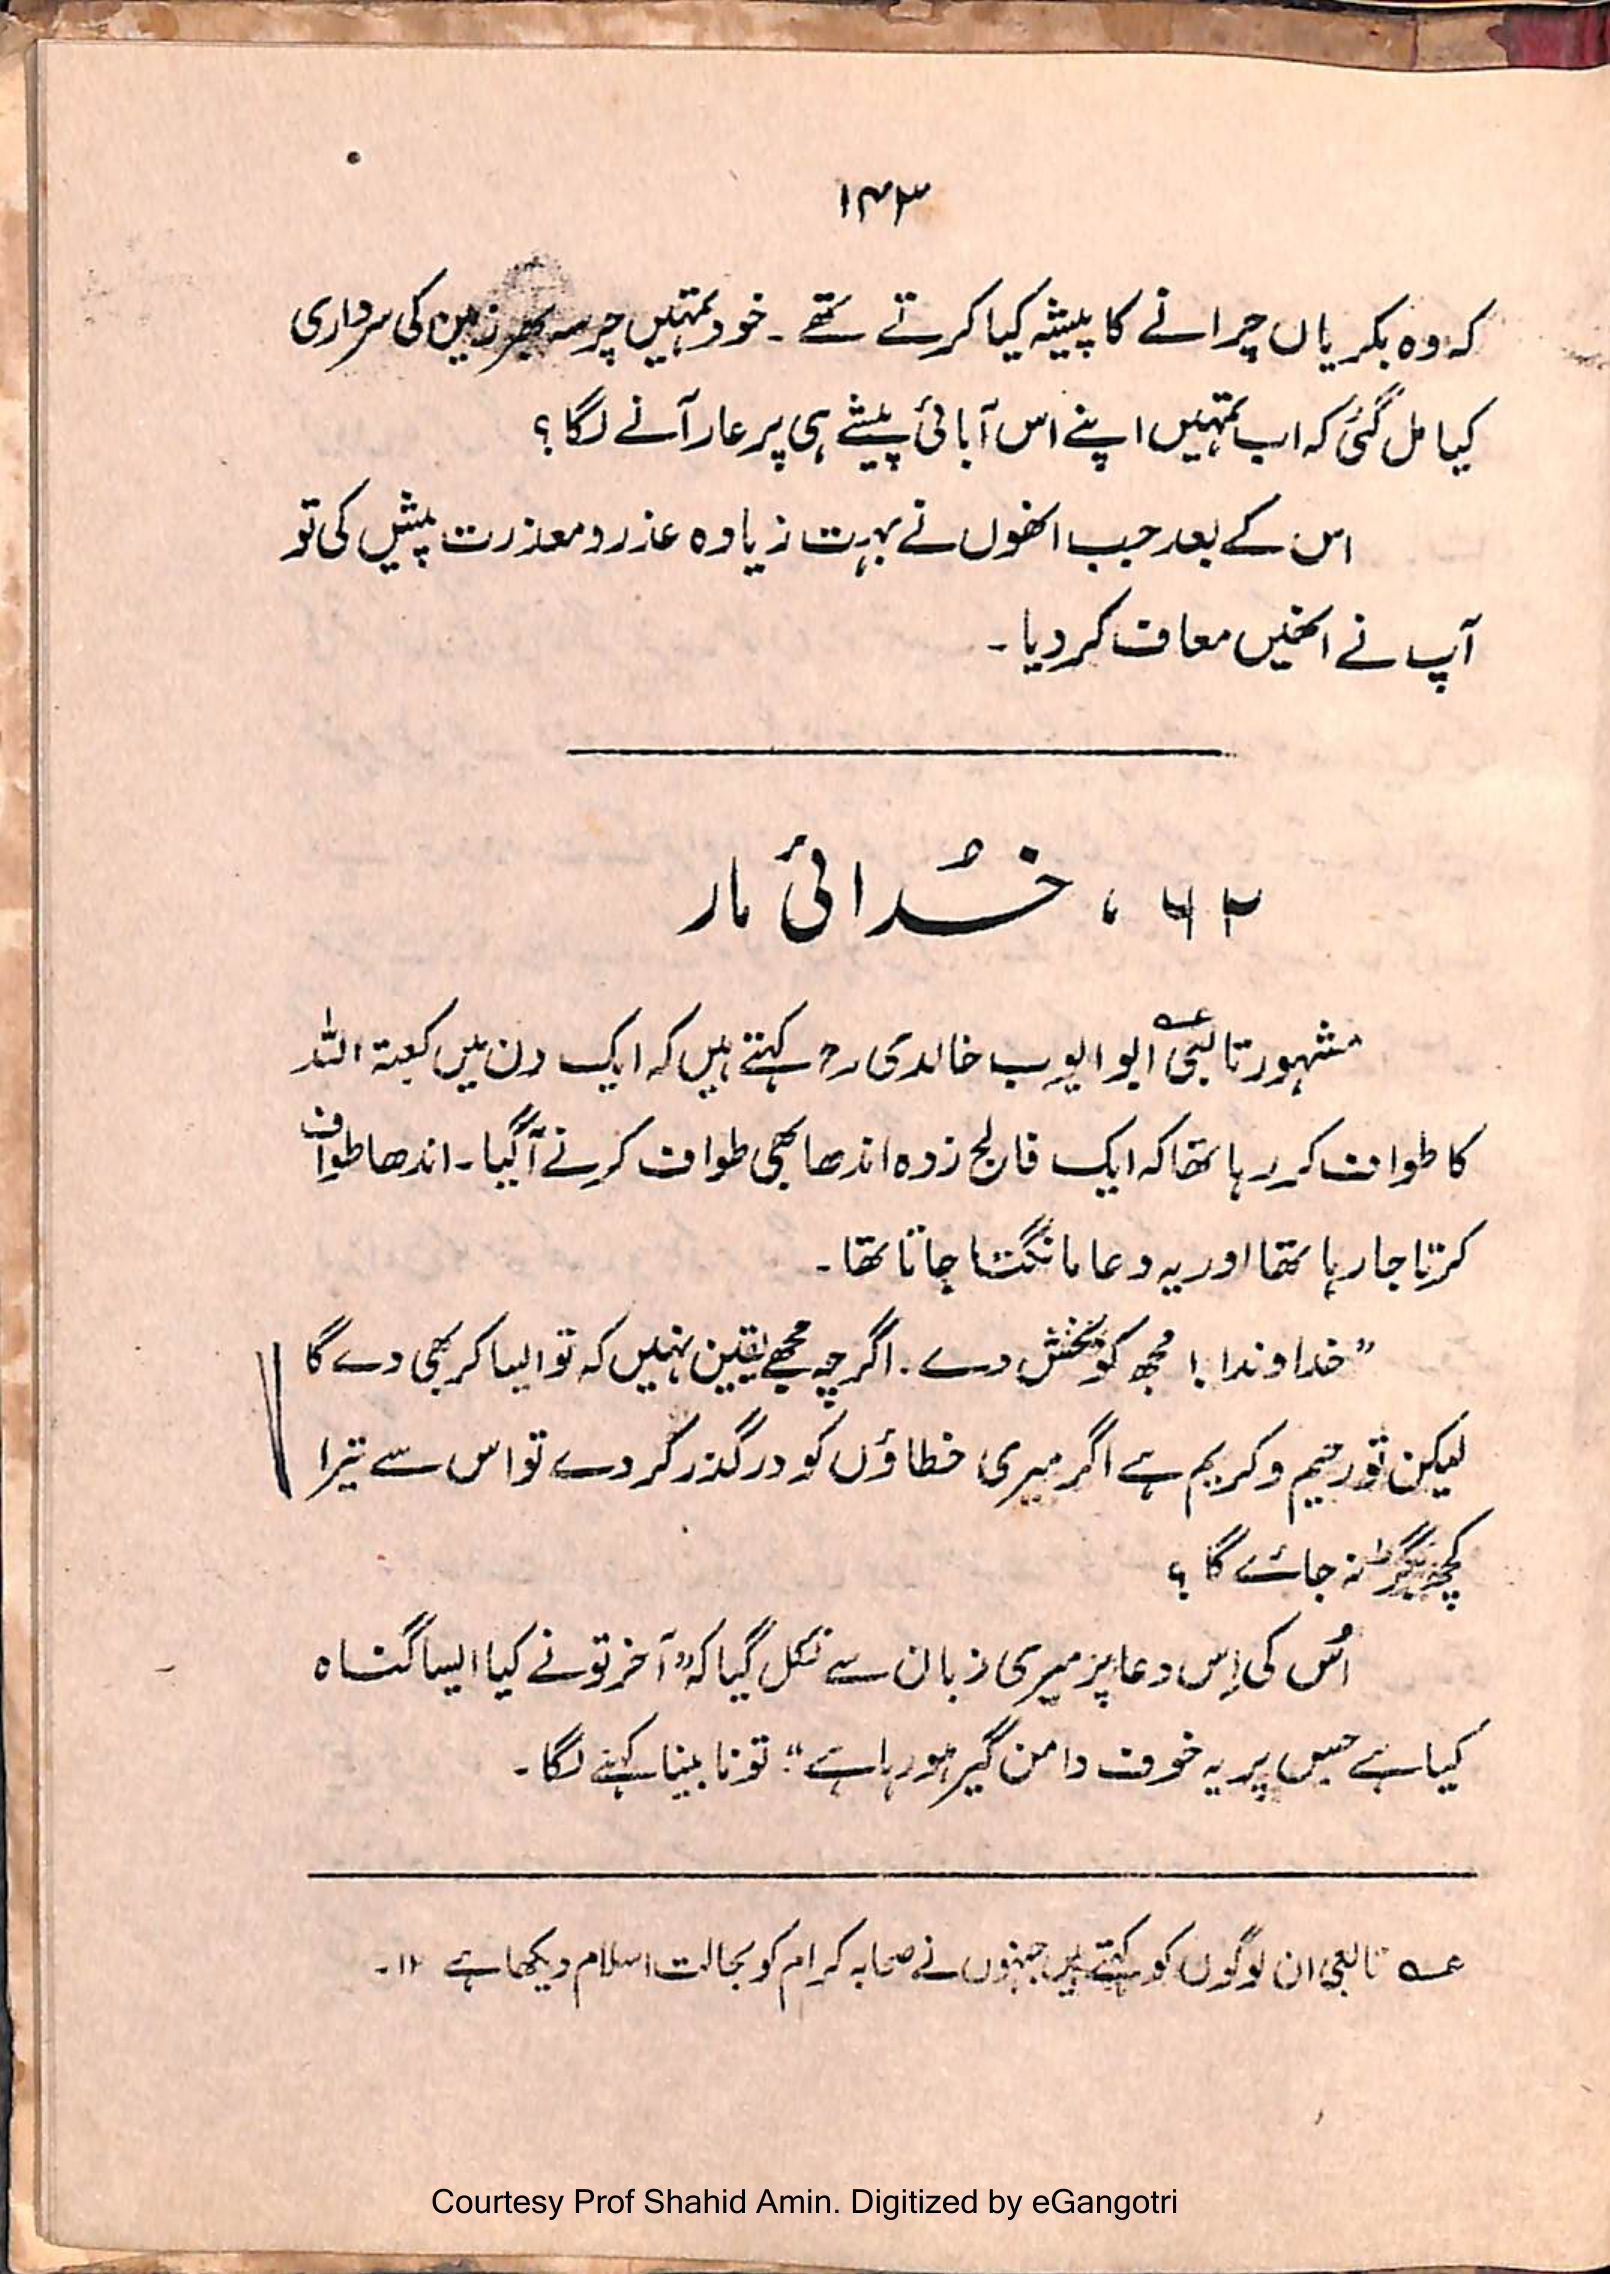 ۱۴۳
کہ وہ بکریاں چرانے کا پیشہ کیا کرتے تھے ۔ خود تمہیں چرسہ بھر زمین کی سرداری
کیا مل گئی کہ اب تمہیں اپنے اس آبائی پیشے ہی پر عار آنے لگا ؟
اس کے بعد جب انھوں نے بہت زیادہ عذر و معذرت پیش کی تو
آپ نے انھیں معاف کر دیا ۔
۶۲ ، خُدائی مار
مشہور تابعی عہ ابو ایوب خالدی رح کہتے ہیں کہ ایک دن میں کعبۃ اللہ
کا طواف کر رہا تھا کہ ایک فالج زدہ اندھا بھی طواف کرنے آگیا ۔ اندھا طواف
کرتا جا رہا تھا اور یہ دعا مانگتا جاتا تھا ۔
” خداوندا ! مجھ کو بخش دے ۔ اگرچہ مجھے یقین نہیں کہ تو ایسا کر بھی دے گا
لیکن تو رحیم و کریم ہے اگر میری خطاؤں کو درگذر کر دے تو اس سے تیرا
کچھ بگڑ نہ جائے گا ؟
اُس کی اِس دعا پر میری زبان سے نکل گیا کہ ” آخر تو نے کیا ایسا گناہ
کیا ہے جس پر یہ خوف دامن گیر ہو رہا ہے “ تو نابینا کہنے لگا ۔
عہ تابعی ان لوگوں کو کہتے ہیں جنہوں نے صحابہ کرام کو بحالت اسلام دیکھا ہے ۱۲ ۔
Courtesy Prof Shahid Amin. Digitized by eGangotri